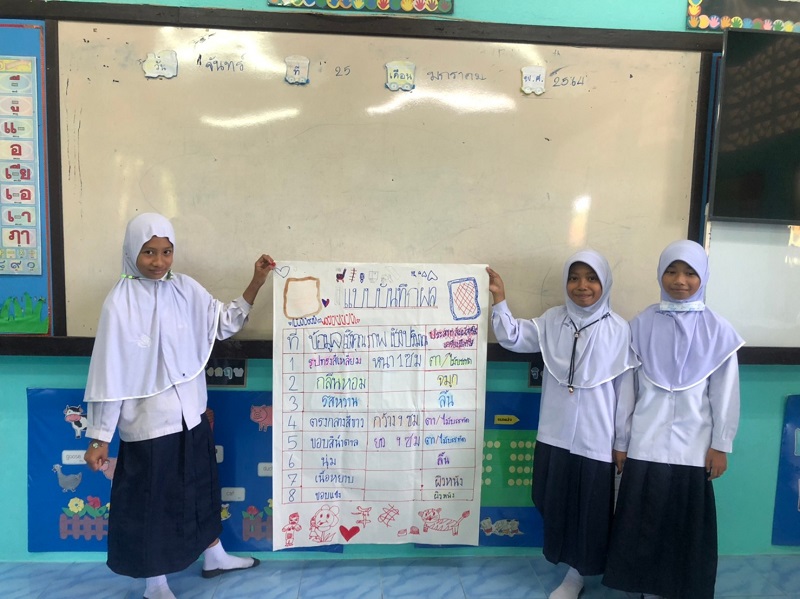 วัน จันทร์ ที่ 25 เดือน มกราคม พ.ศ. 2564
แบบบันทึกผล
ที่ ข้อมูลเชิงคุณภาพ เชิงปริมาณ
1 รูปทรงสี่เหลี่ยม หนา 1 ซม ตา/ไม้บรรทัด
2 กลิ่นหอม จมูก
3 รสหวาน ลิ้น
4 ตรงกลางสีขาว กว้าง 9 ซม ตา/ไม้บรรทัด
5 ขอบสีน้ำตาล ตา/ไม้บรรทัด
6 นุ่ม ลิ้น
7 เนื้อหยาบ ผิวหนัง
8 ขอบแข็ง ผิวหนัง